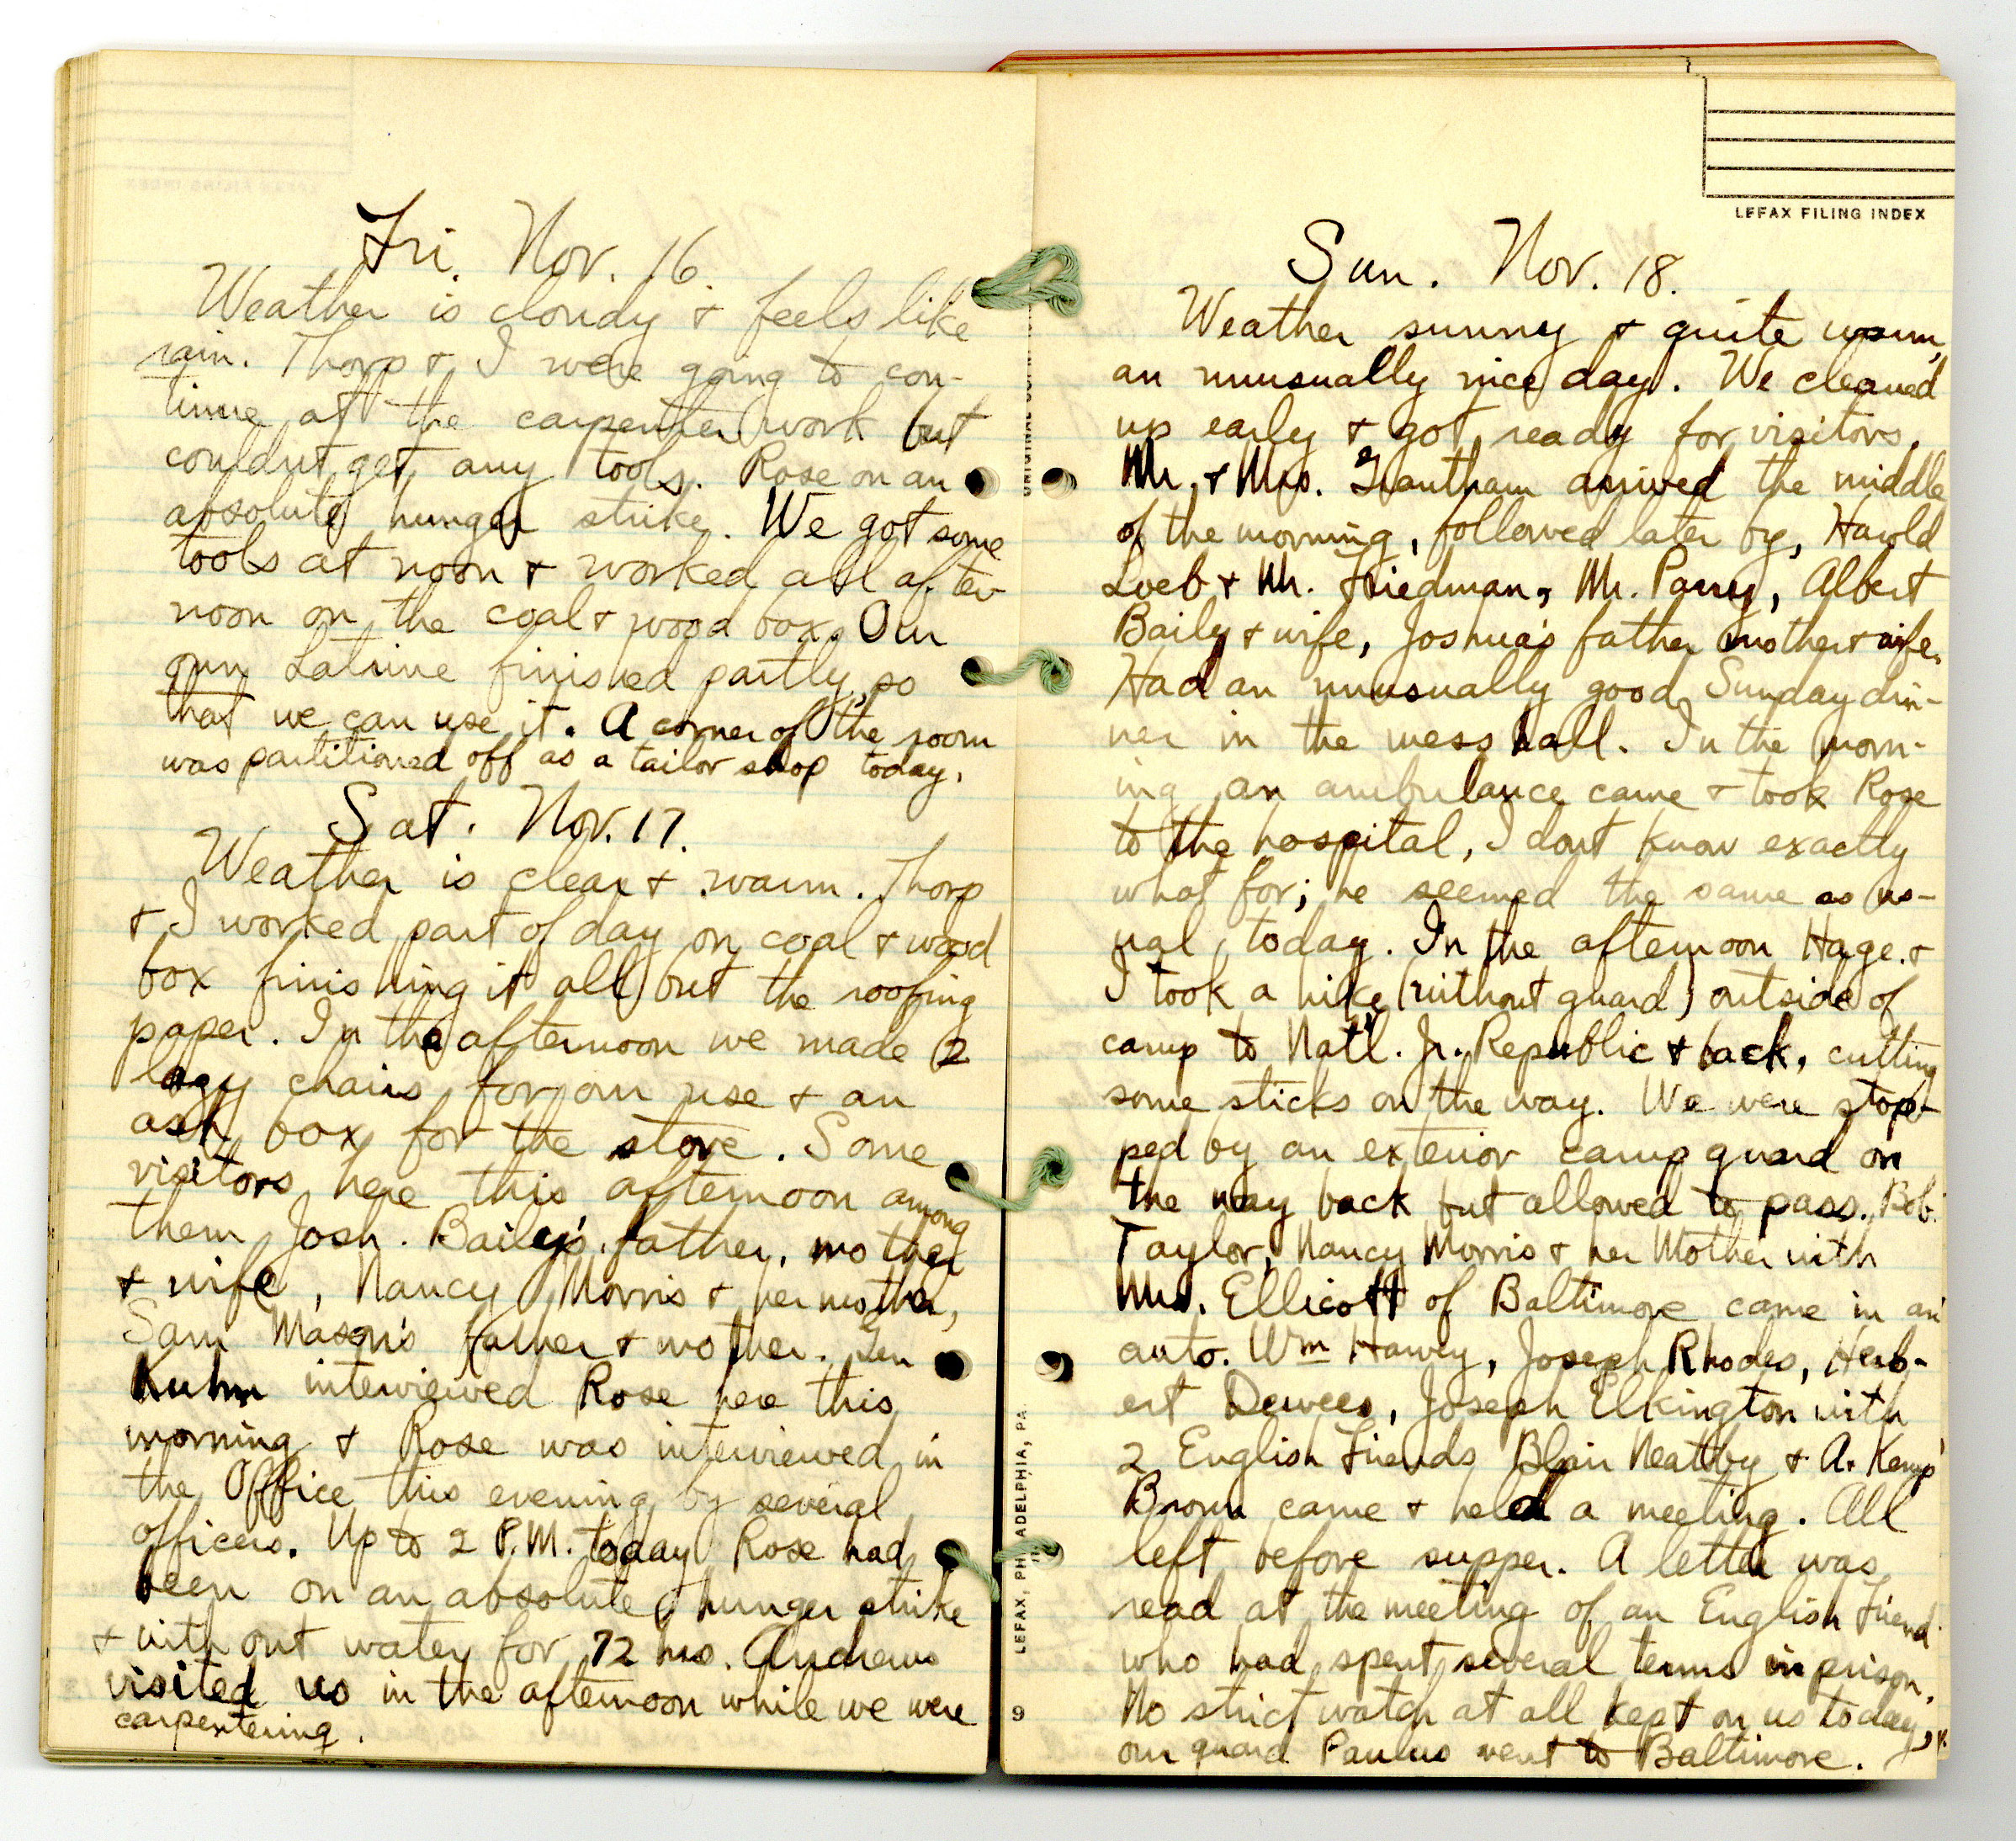 Fri. Nov. 16.
Weather is cloudy & feels like
rain. Thorp & I were going to con-
tinue at the carpenter work but
couldn't get any tools. Rose on an
absolute hunger strike. We got some
tools at noon & worked all after-
noon on the coal & wood box. Our
own Latrine finished partly, so
that we can use it. A corner of the room
was partitioned off as a tailor shop today.
Sat. Nov. 17.
Weather is clear & warm. Thorp
& I worked part of day on coal & wood
box finishing it all but the roofing
paper. In the afternoon we made 2
lazy chairs for our use & an
ash box for the stove. Some
visitors here this afternoon among
them Josh. Baily's father, mother
& wife, Nancy Morris & her mother,
Sam Mason's father & mother. Gen
Kuhn interviewed Rose here this
morning & Rose was interviewed in
the Office this evening by several
officers. Up to 2 P.M. today Rose had
been on an absolute hunger strike
& without water for 72 hrs. Andrews
visited us in the afternoon while we were
carpentering.
LEFAX FILING INDEX
Sun. Nov. 18.
Weather sunny & quite warm,
an unusually nice day. We cleaned
up early & got ready for visitors.
Mr. & Mrs. Grantham arrived the middle
of the morning, followed later by, Harold
Loeb & Mr. Friedman, Mr. Parry, Albert
Baily & wife, Joshua's father mother & wife.
Had an unusually good Sunday din-
ner in the mess hall. In the morn-
ing an ambulance came & took Rose
to the hospital, I dont know exactly
what for; he seemed the same as us-
ual, today. In the afternoon Hage. &
I took a hike (without guard) outside of
camp to Nat'l. Jr. Republic & back, cutting
some sticks on the way. We were stop-
ped by an exterior camp guard on
the way back but allowed to pass. Bob.
Taylor, Nancy Morris & her Mother with
Mrs. Ellicott of Baltimore came in an
auto. Wm Harvey, Joseph Rhodes, Herb-
ert Dewees, Joseph Elkington with
2 English Friends Blair Neatby & A. Kemp
Brown came & held a meeting. All
left before supper. A letter was
read at the meeting of an English Friend
who had spent several terms in prison.
No strict watch at all kept on us today,
our guard Paulus went to Baltimore.
LEFAX, PHILADELPHIA, PA.
9